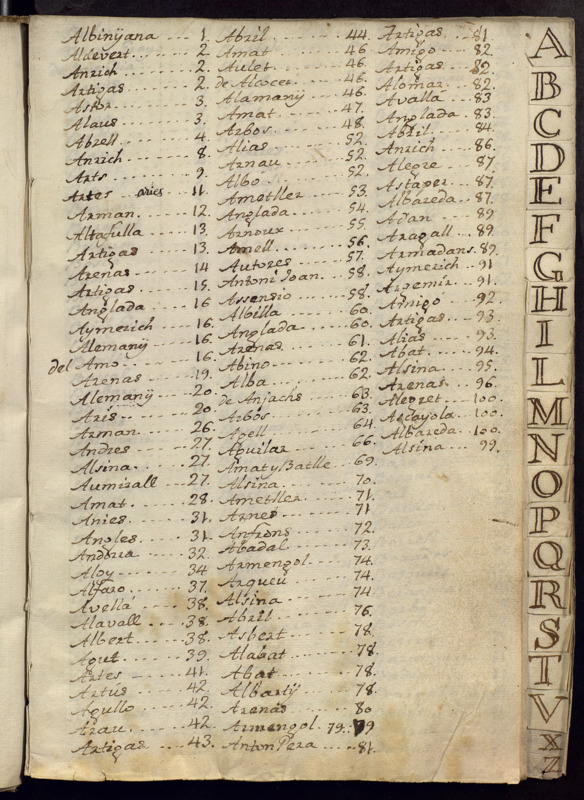 Albinÿana --- 1.
Aldevert --- 2.
Anrich --- 2.
Artigas --- 2.
Astor --- 3.
Alaus --- 3.
Abrell --- 4.
Anrich --- 8.
Arts --- 9.
Artes aries 11.
Arman --- 12.
Altafulla --- 13.
Artigas --- 13.
Arenas --- 14
Artigas --- 15.
Anglada --- 16
Aymerich --- 16.
Alemanÿ --- 16.
del Amo --- 16.
Arenas --- 19.
Alemanÿ --- 20.
Aris --- 20.
Arman --- 26.
Andres --- 27.
Alsina --- 27.
Aumirall --- 27.
Amat --- 28.
Anies --- 31.
Angles --- 31.
Andreu --- 32.
Aloy --- 34
Alfaro --- 37.
Avellá --- 38.
Alavall --- 38.
Albert --- 38.
Agut --- 39.
Artes --- 41.
Artus --- 42.
Agullo --- 42
Arau --- 42.
Artigas --- 43.
Abril --- 44.
Amat --- 46
Aulet --- 46.
de Alcocer --- 46.
Alamanÿ --- 46.
Amat --- 47.
Arbos --- 48.
Alias --- 52.
Arnau --- 52.
Albo --- 52.
Ametller --- 53.
Anglada --- 54.
Arnoux --- 55.
Amell --- 56.
Autores --- 57.
Antoni Joan --- 58.
Assensio --- 58.
Albilla --- 60.
Anglada --- 60.
Arenas --- 61.
Abino --- 62.
Alba --- 62.
de Anjachs --- 63.
Arbós --- 63.
Agell --- 64.
Aguilar --- 66.
Amat y Batlle --- 69.
Alsina --- 70.
Ametller --- 71.
Arnes --- 71
Anfrons --- 72.
Abadal --- 73.
Armengol --- 74.
Arqueu --- 74.
Alsina --- 74
Abril --- 76.
Asbert --- 78.
Alabat --- 78.
Abat --- 78.
Albartÿ --- 78.
Arenas --- 80
Armengol 79. 79
Anton Pera --- 81.
Artigas --- 81
Amigo --- 82.
Artigas --- 82.
Alomar --- 82.
Avallá --- 83
Anglada --- 83.
Abril --- 84.
Anrich --- 86.
Alegre --- 87
Astaper --- 87.
Albareda --- 87.
Adan --- 89
Aragall --- 89.
Armadans 89.
Aymerich --- 91
Argemir --- 91.
Arnigo --- 92
Artigas --- 93
Alias --- 93.
Abat --- 94.
Alsina --- 95.
Arenas --- 96.
Alegret --- 100.
Ascayola --- 100.
Albareda --- 100.
Alsina --- 99.
A
B
C
D
E
F
G
H
I
L
M
N
O
P
Q
R
S
T
V
X
Z